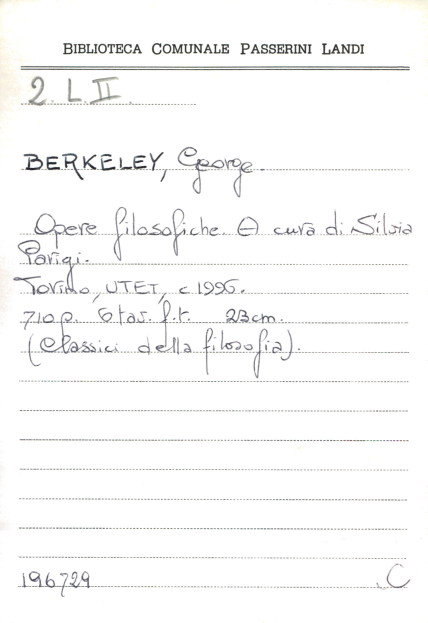 BIBLIOTECA COMUNALE PASSERINI LANDI
2. L. II.
BERKELEY, George.
Opere filosofiche. A cura di Silvia
Parigi.
Torino, UTET, c 1996.
710 p. 6 tav. f.t. 23 cm.
(Classici della filosofia).
196729
C